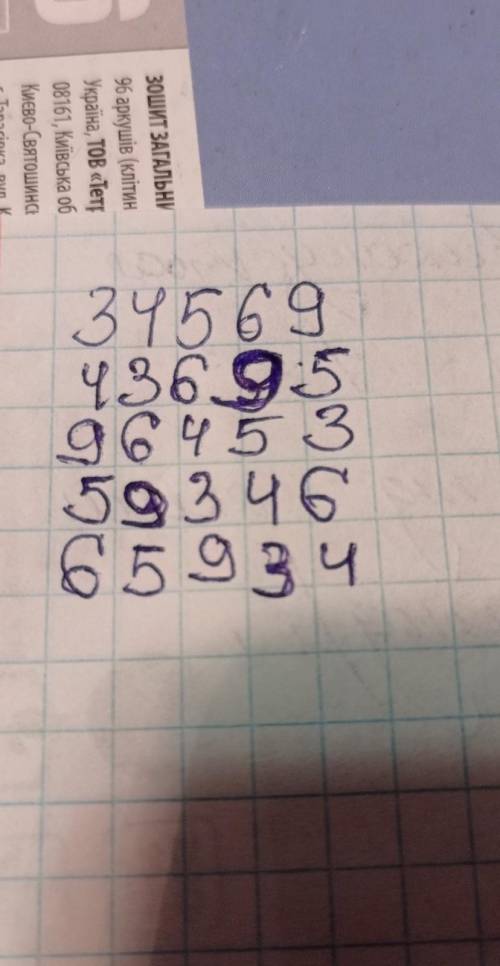 ЗОШИТ ЗАГАЛЬНИ
96 аркушів (клітин
Україна, ТОВ «Тетр
08161, Київська об
Києво-Святошинсь
3 4 5 6 9
4 3 6 9 5
9 6 4 5 3
5 9 3 4 6
6 5 9 3 4